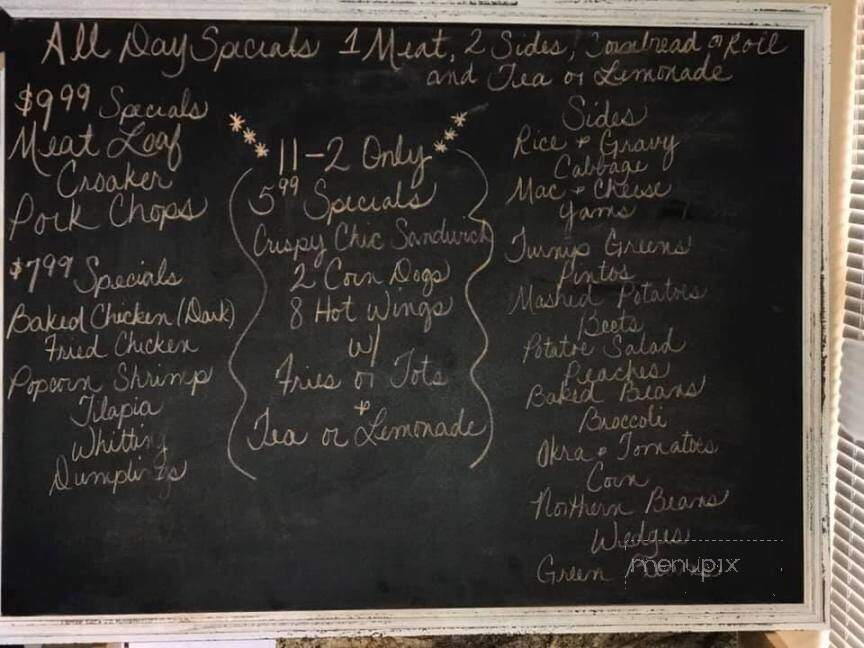 All Day Specials 1 Meat, 2 Sides, Cornbread or Roll
and Tea or Lemonade
$9.99 Specials
Meat Loaf
Croaker
Pork Chops
$7.99 Specials
Baked Chicken (Dark)
Fried Chicken
Popcorn Shrimp
Tilapia
Whitting
Dumplings
11-2 Only
5.99 Specials
Crispy Chic Sandwich
2 Corn Dogs
8 Hot Wings
w/
Fries or Tots
+
Tea or Lemonade
Sides
Rice + Gravy
Cabbage
Mac + Cheese
Yams
Turnip Greens
Pintos
Mashed Potatoes
Beets
Potatoe Salad
Peaches
Baked Beans
Broccoli
Okra + Tomatoes
Corn
Northern Beans
Wedges
Green
menupix